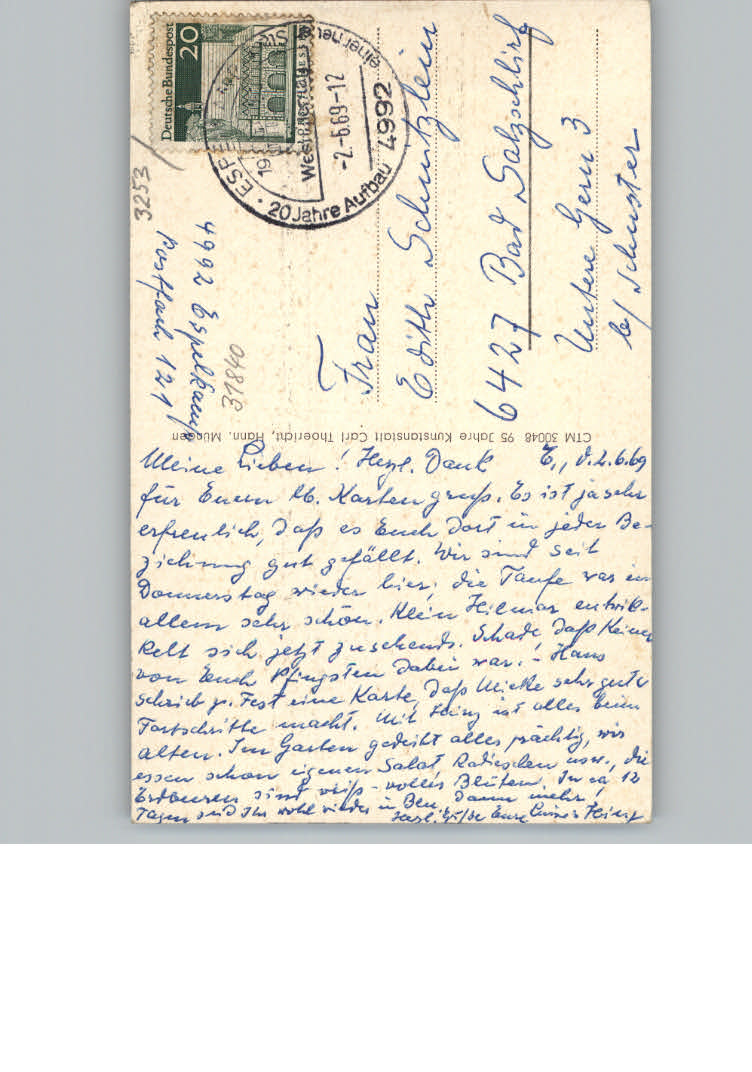 Deutsche Bundespost
20
ESPE
19
Westfalen
-2.-6.69-12
4992
20 Jahre Aufbau
einer neuen
3253
4992 Espelkamp
Postfach 121
31840
Frau
Edith Schnitzlein
6427 Bad Salzschlirf
Untere Gern 3
b/ Schuster
CTM 30048 95 Jahre Kunstanstalt Carl Thoericht, Hann. Münden
Meine Lieben! Herzl. Dank E., d. 2.6.69
für Euern lb. Kartengruß. Es ist ja sehr
erfreulich, daß es Euch dort in jeder Be-
ziehung gut gefällt. Wir sind seit
Donnerstag wieder hier; die Taufe war in
allem sehr schön. Klein Hilmar entwik-
kelt sich jetzt zusehends. Schade, daß Keiner
von Euch Pfingsten dabei war! - Hans
schrieb z. Fest eine Karte, daß Mieke sehr gute
Fortschritte macht. Mit Heinz ist alles beim
alten. Im Garten gedeiht alles prächtig, wir
essen schon eigenen Salat Radieschen usw., die
Erdbeeren sind weiß - voller Blüten. In ca 12
Tagen seid Ihr wohl wieder in Ben. Dann mehr!
Herzl. Grüße Eure Heinz